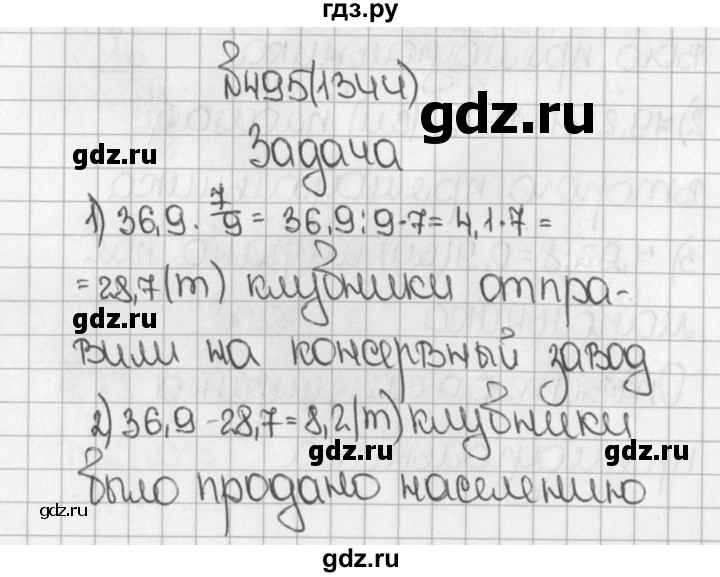 гдз.ру
№495(1344)
gdz.ru
Задача
gdz.ru
1) 36,9 · 7/9 = 36,9 : 9 · 7 = 4,1 · 7 =
= 28,7 (т) клубники отпра-
gdz.ru
gdz.ru
вили на консервный завод
2) 36,9 - 28,7 = 8,2 (т) клубники
gdz.ru
gdz.ru
было продано населению
gdz.ru
gdz.ru
gdz.ru